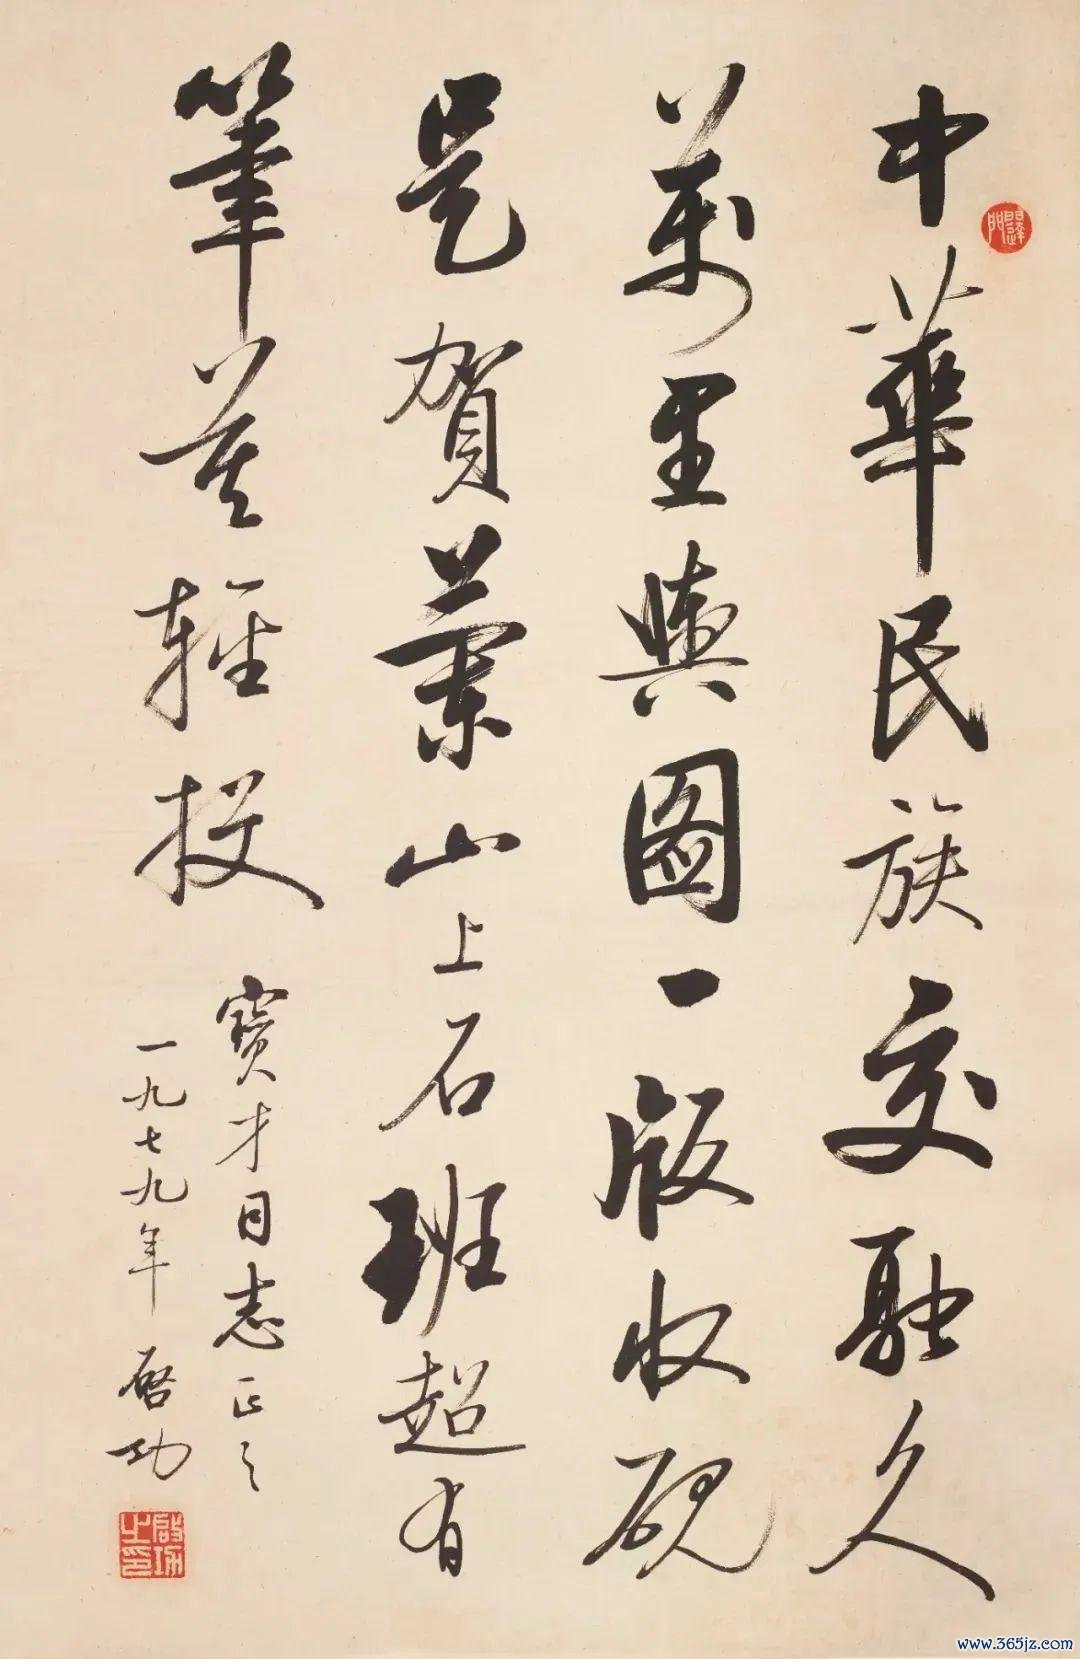 中華民族交融久
萬里輿圖一版收硯
是賀蘭山上石班超有
筆莫輕投
寶才同志正之
一九七九年 啓功
啟功之印
www.365jz.com